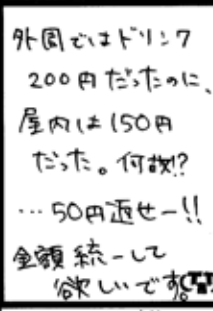 外周ではドリンク
200円だったのに、
屋内は150円
だった。何故!?
…50円返せー!!
金額統一して
欲しいです